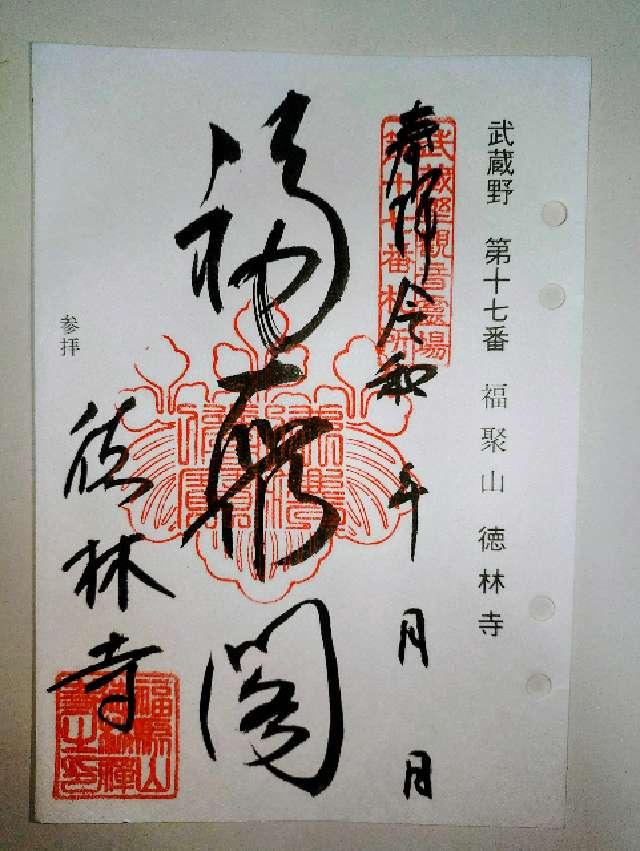 武蔵野　第十七番　福聚山　徳林寺
奉拝 令和　年　月　日
武蔵野観音霊場
第十七番札所
福聚閣
参拝
徳林寺